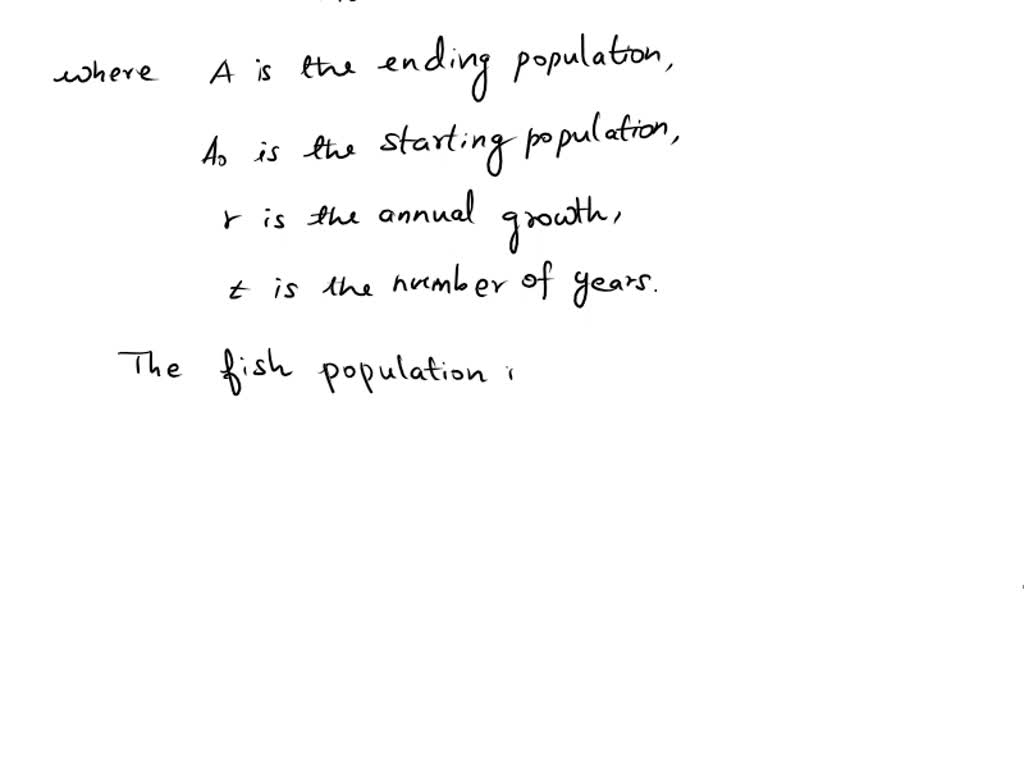 where A is the ending population,
A₀ is the starting population,
r is the annual growth,
t is the number of years.
The fish population